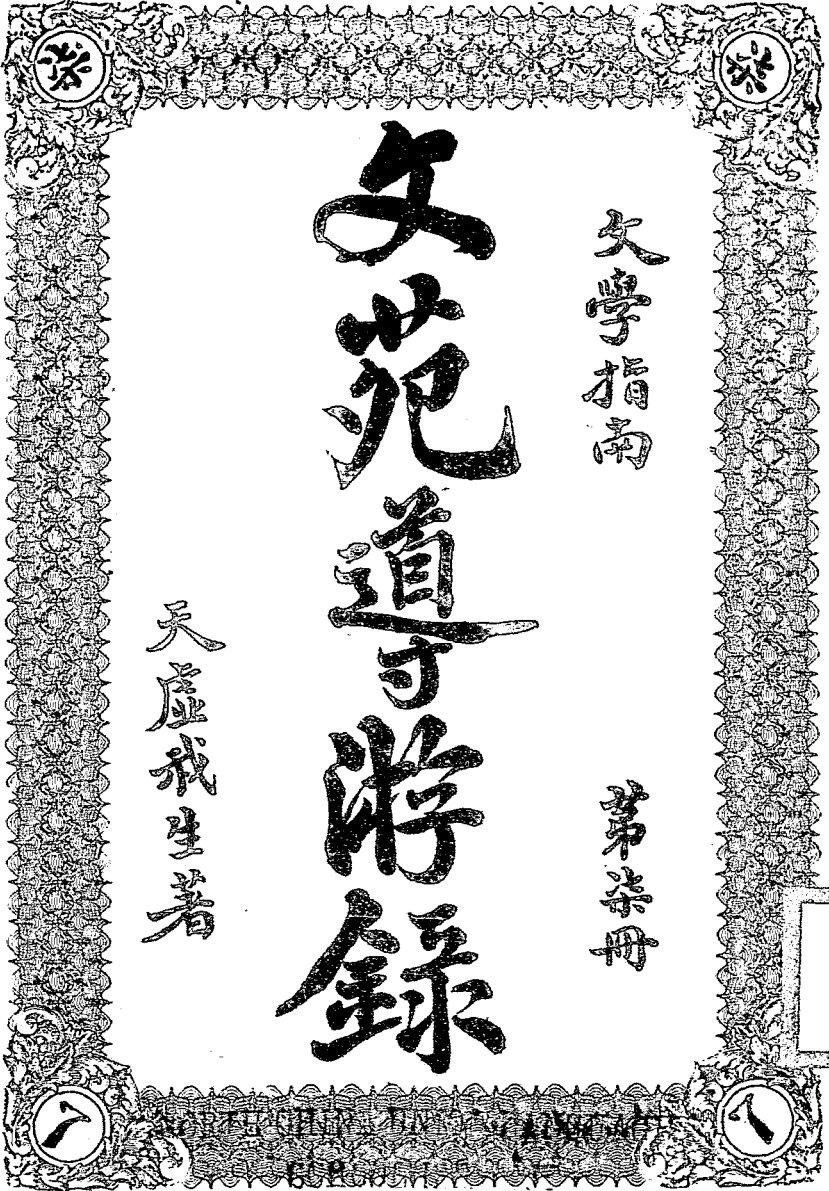 文學指南
第柒冊
文苑導游錄
天虛我生著